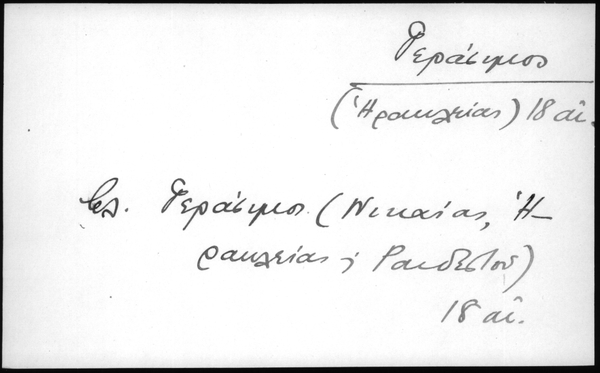 Γεράσιμος
(Ἡρακλείας) 18 αἰ.
βλ. Γεράσιμος (Νικαίας, Ἡ-
ρακλείας ἢ Ραιδεστοῦ)
18 αἰ.